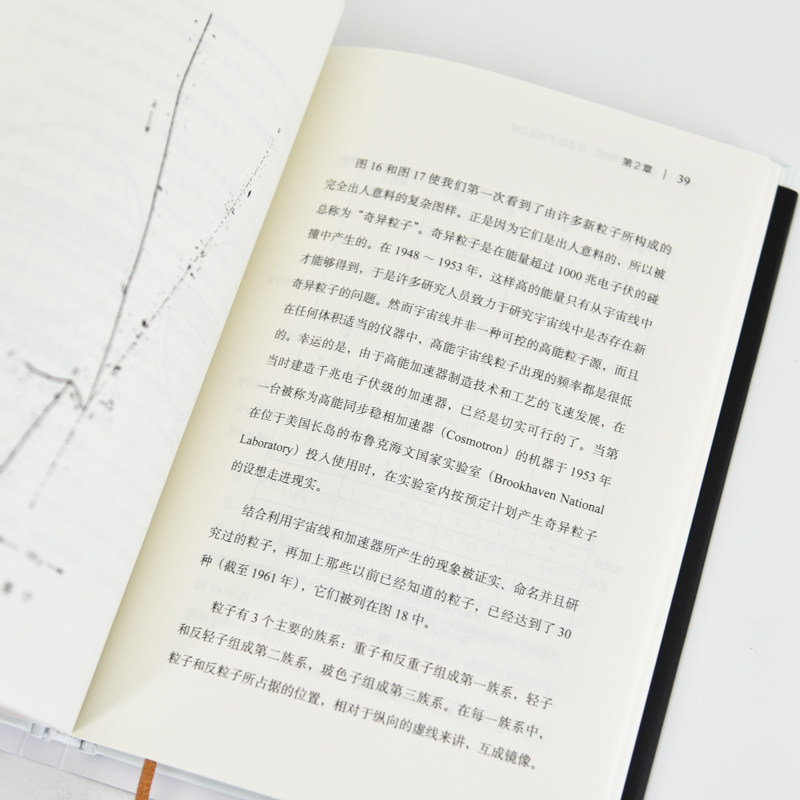 第2章 | 39
图 16 和图 17 使我们第一次看到了由许多新粒子所构成的
完全出人意料的复杂图样。正是因为它们是出人意料的，所以被
总称为“奇异粒子”。奇异粒子是在能量超过 1000 兆电子伏的碰
撞中产生的。在 1948 ～ 1953 年，这样高的能量只有从宇宙线中
才能够得到，于是许多研究人员致力于研究宇宙线中是否存在新
奇异粒子的问题。然而宇宙线并非一种可控的高能粒子源，而且
在任何体积适当的仪器中，高能宇宙线粒子出现的频率都是很低
的。幸运的是，由于高能加速器制造技术和工艺的飞速发展，在
当时建造千兆电子伏级的加速器，已经是切实可行的了。当第
一台被称为高能同步稳相加速器（Cosmotron）的机器于 1953 年
在位于美国长岛的布鲁克海文国家实验室（Brookhaven National
Laboratory）投入使用时，在实验室内按预定计划产生奇异粒子
的设想走进现实。
结合利用宇宙线和加速器所产生的现象被证实、命名并且研
究过的粒子，再加上那些以前已经知道的粒子，已经达到了 30
种（截至 1961 年），它们被列在图 18 中。
粒子有 3 个主要的族系：重子和反重子组成第一族系，轻子
和反轻子组成第二族系，玻色子组成第三族系。在每一族系中，
粒子和反粒子所占据的位置，相对于纵向的虚线来讲，互成镜像。